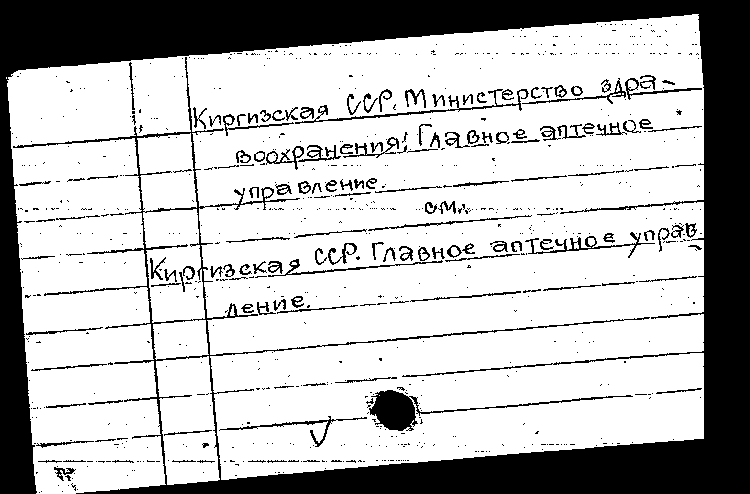 Киргизская ССР. Министерство здра-
воохранения. Главное аптечное
управление.
см.
Киргизская ССР. Главное аптечное управ-
ление.